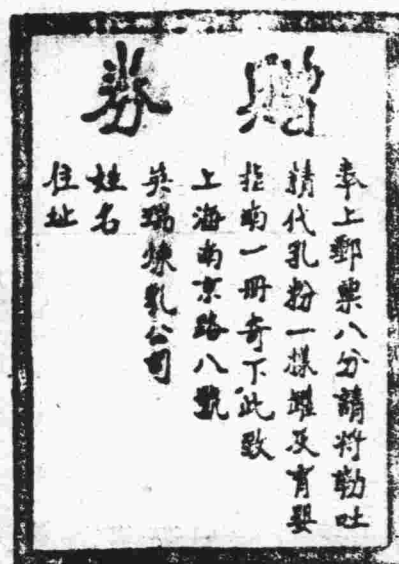 贈券
奉上郵票八分請將勒吐
精代乳粉一樣罐及育嬰
指南一冊寄下此致
上海南京路八號
英瑞煉乳公司
姓名
住址